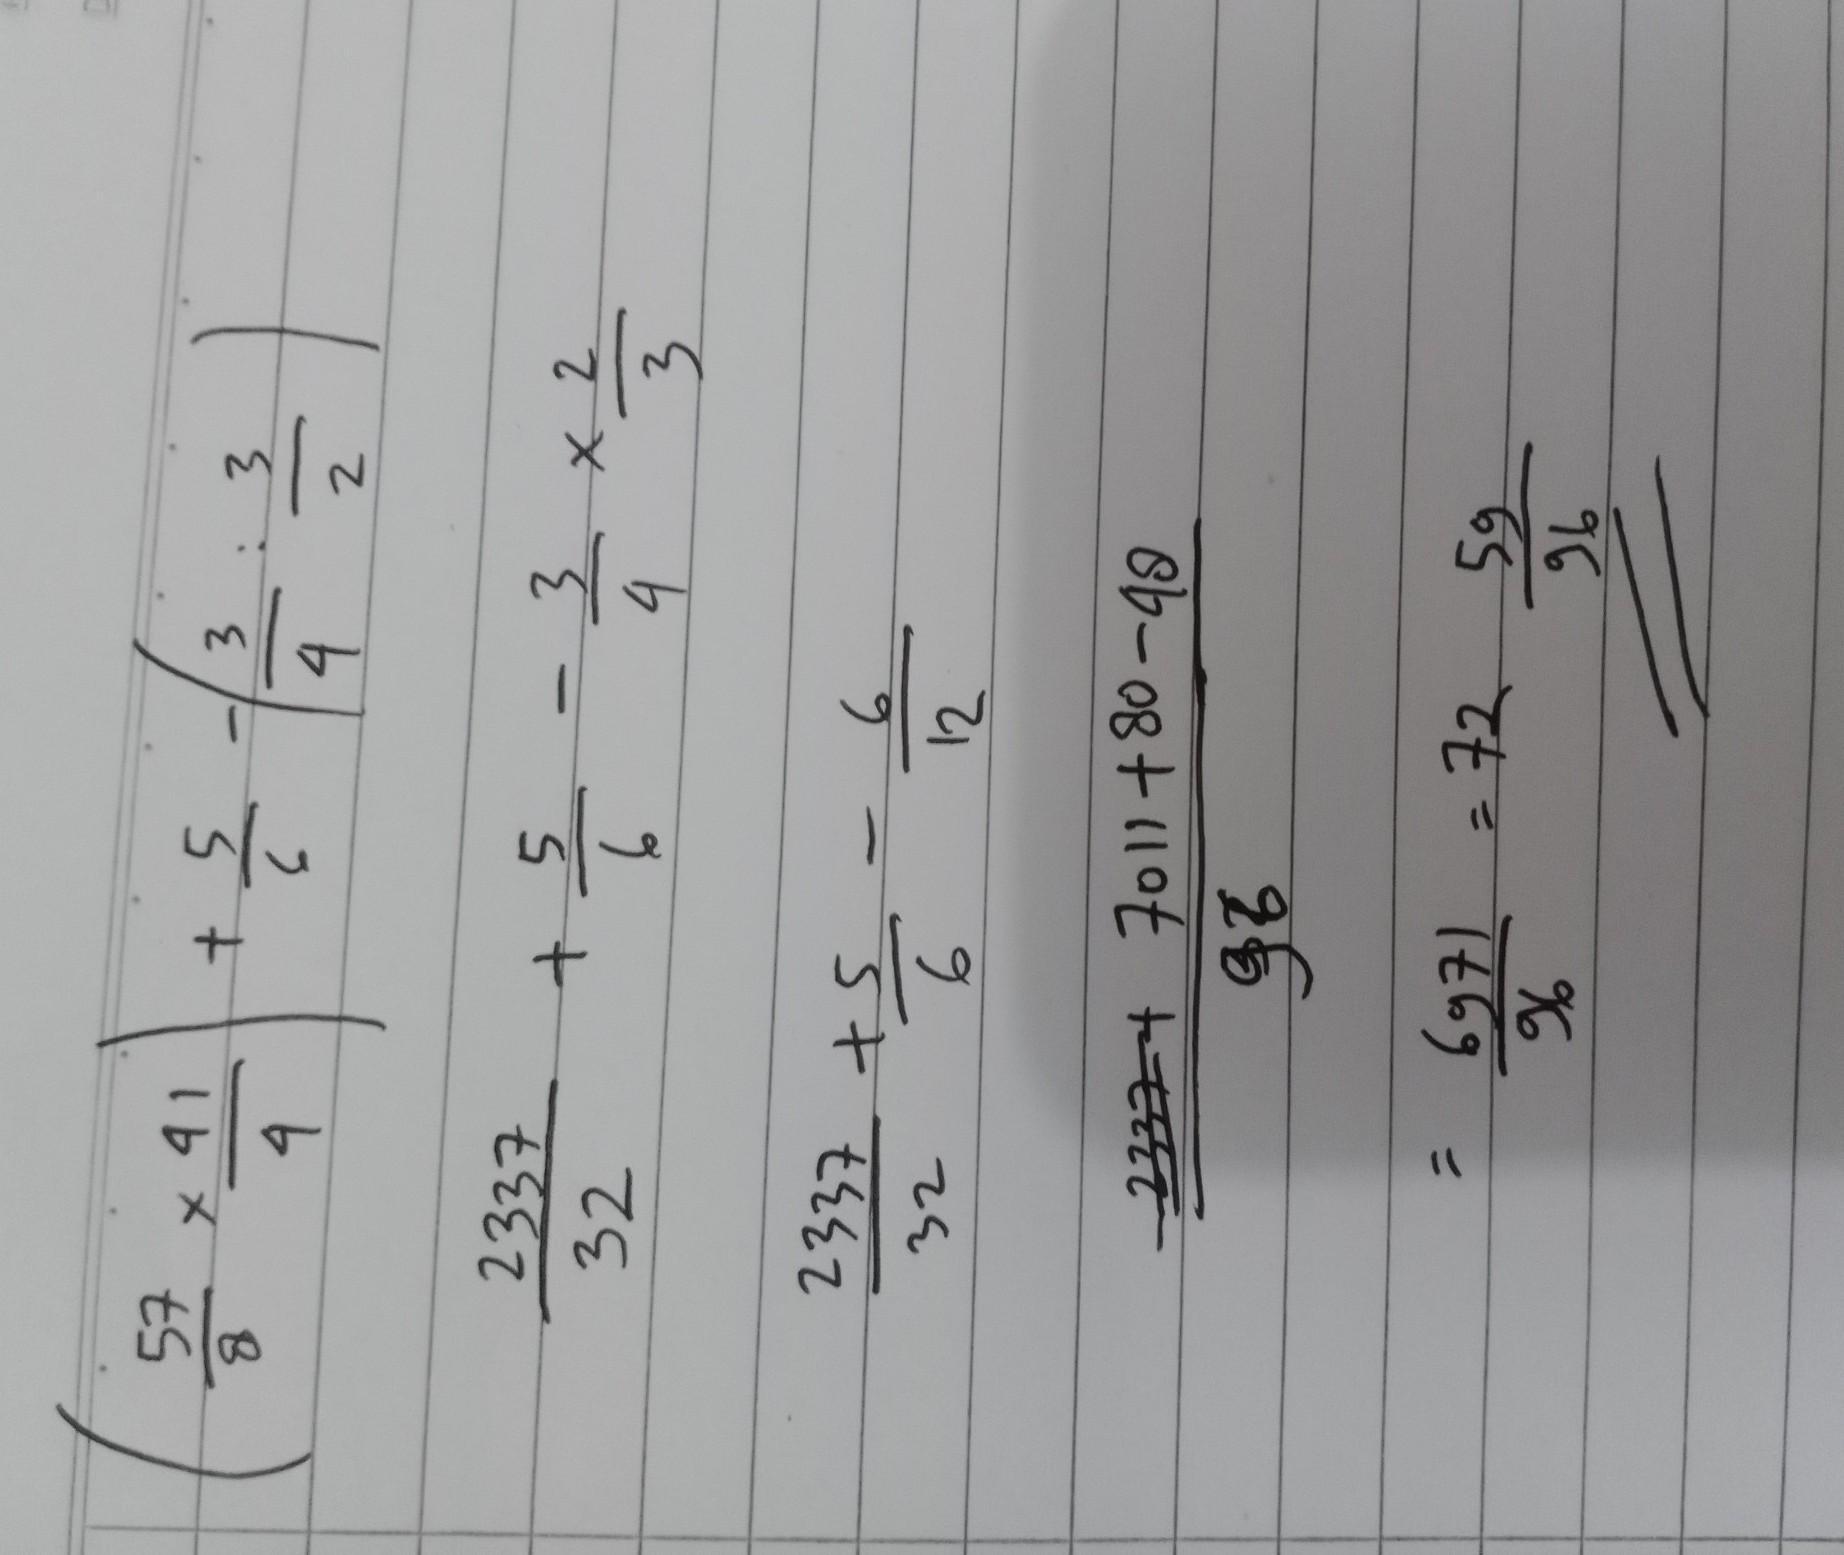 (57/8 × 41/4) + 5/6 - (3/4 : 3/2)
2337/32 + 5/6 - 3/4 × 2/3
2337/32 + 5/6 - 6/12
2337 + 7011 + 80 - 48 / 96
= 6971/96 = 72 59/96